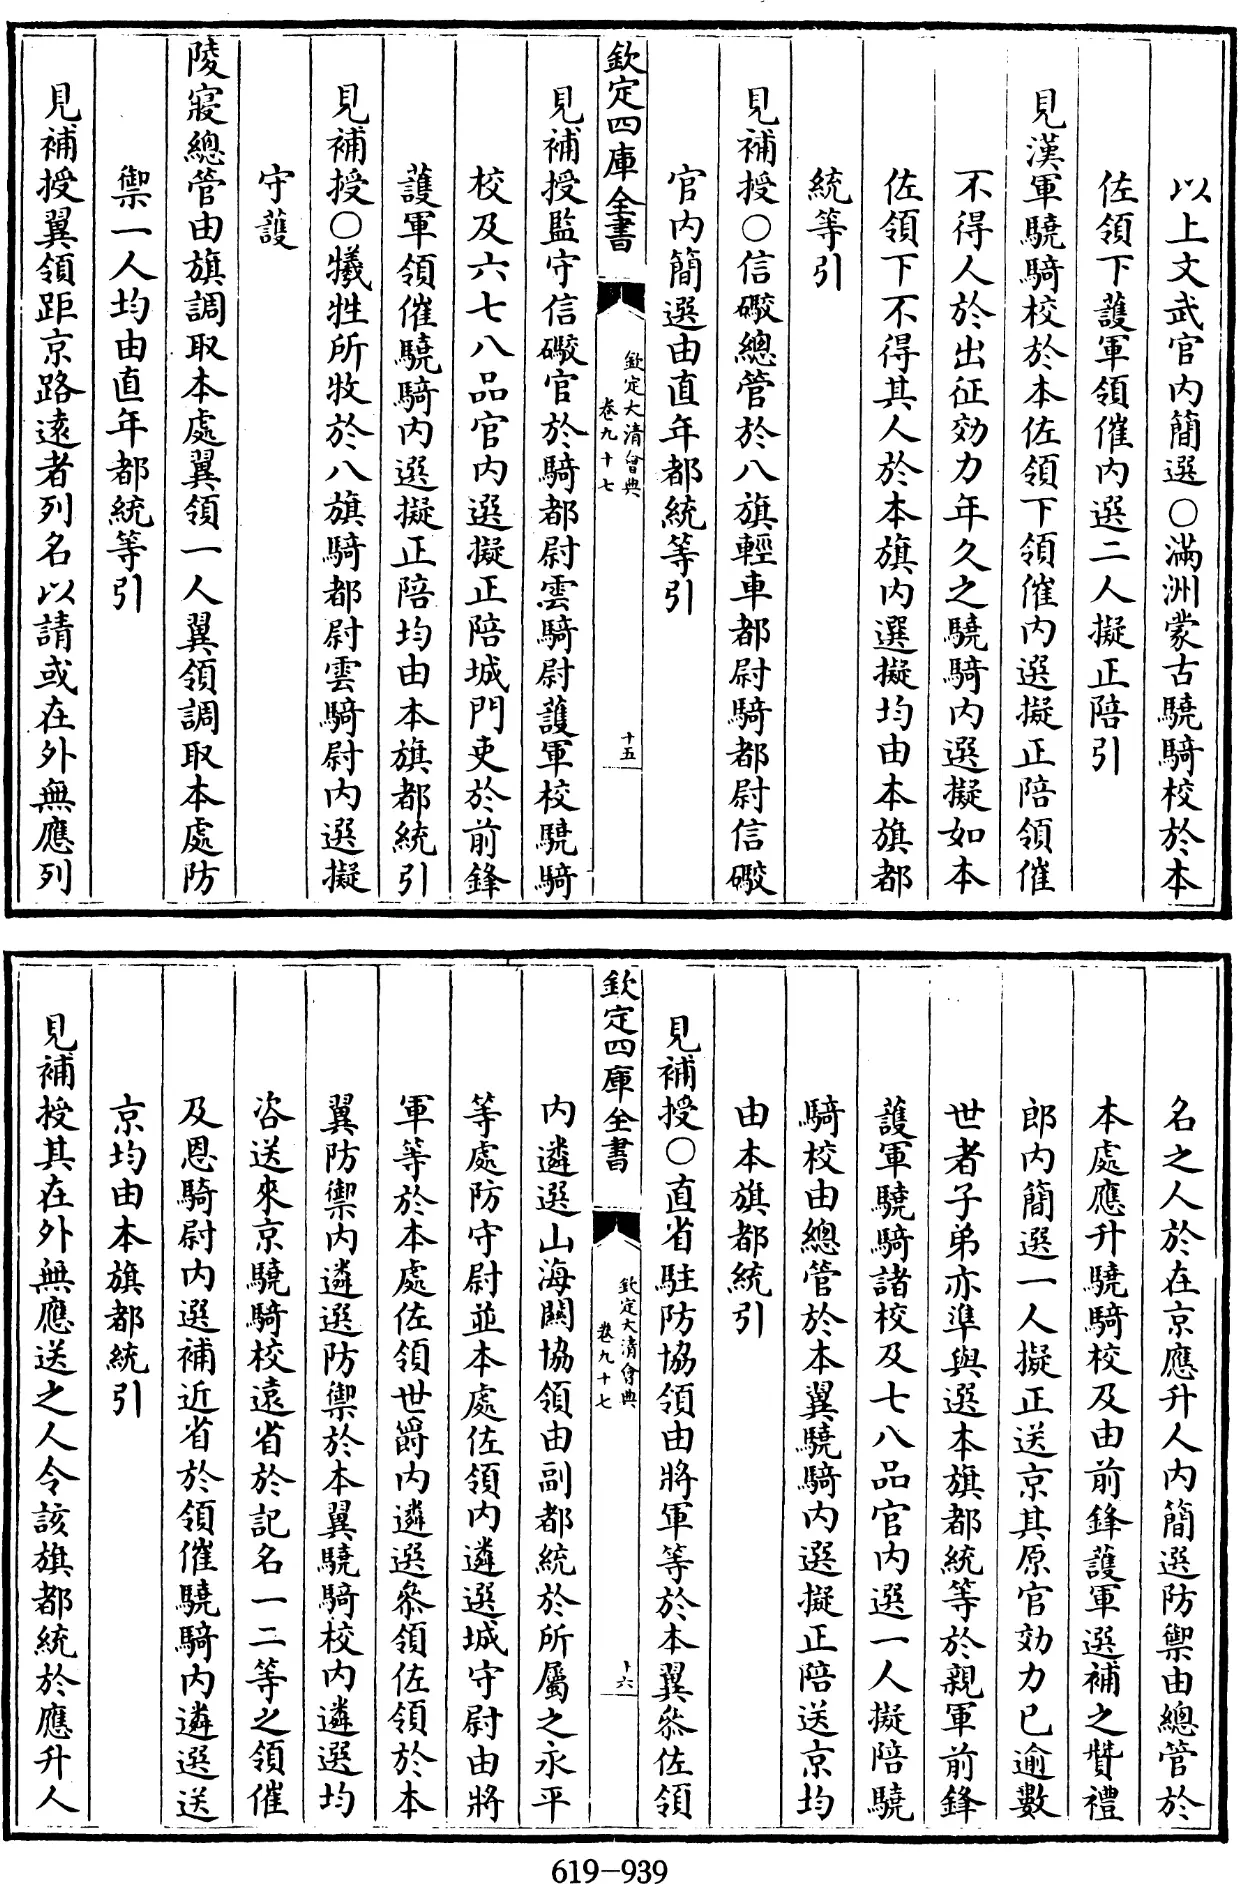 以上文武官內簡選○滿洲蒙古驍騎校於本
佐領下護軍領催內選二人擬正陪引
見漢軍驍騎校於本佐領下領催內選擬正陪領催
不得人於出征効力年久之驍騎內選擬如本
佐領下不得其人於本旗內選擬均由本旗都
統等引
見補授○信礮總管於八旗輕車都尉騎都尉信礮
官內簡選由直年都統等引
欽定四庫全書
欽定大清會典
卷九十七
十五
見補授監守信礮官於騎都尉雲騎尉護軍校驍騎
校及六七八品官內選擬正陪城門吏於前鋒
護軍領催驍騎內選擬正陪均由本旗都統引
見補授○犧牲所牧於八旗騎都尉雲騎尉內選擬
守護
陵寢總管由旗調取本處翼領一人翼領調取本處防
禦一人均由直年都統等引
見補授翼領距京路遠者列名以請或在外無應列
名之人於在京應升人內簡選防禦由總管於
本處應升驍騎校及由前鋒護軍選補之贊禮
郎內簡選一人擬正送京其原官効力已逾數
世者子弟亦準與選本旗都統等於親軍前鋒
護軍驍騎諸校及七八品官內選一人擬陪驍
騎校由總管於本翼驍騎內選擬正陪送京均
由本旗都統引
見補授○直省駐防協領由將軍等於本翼叅佐領
欽定四庫全書
欽定大清會典
卷九十七
十六
內遴選山海關協領由副都統於所屬之永平
等處防守尉並本處佐領內遴選城守尉由將
軍等於本處佐領世爵內遴選叅領佐領於本
翼防禦內遴選防禦於本翼驍騎校內遴選均
咨送來京驍騎校遠省於記名一二等之領催
及恩騎尉內選補近省於領催驍騎內遴選送
京均由本旗都統引
見補授其在外無應送之人令該旗都統於應升人
619-939